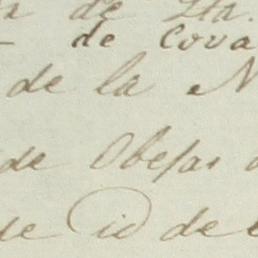 de Sta.
de Cova
de la
de Obejas
de id de